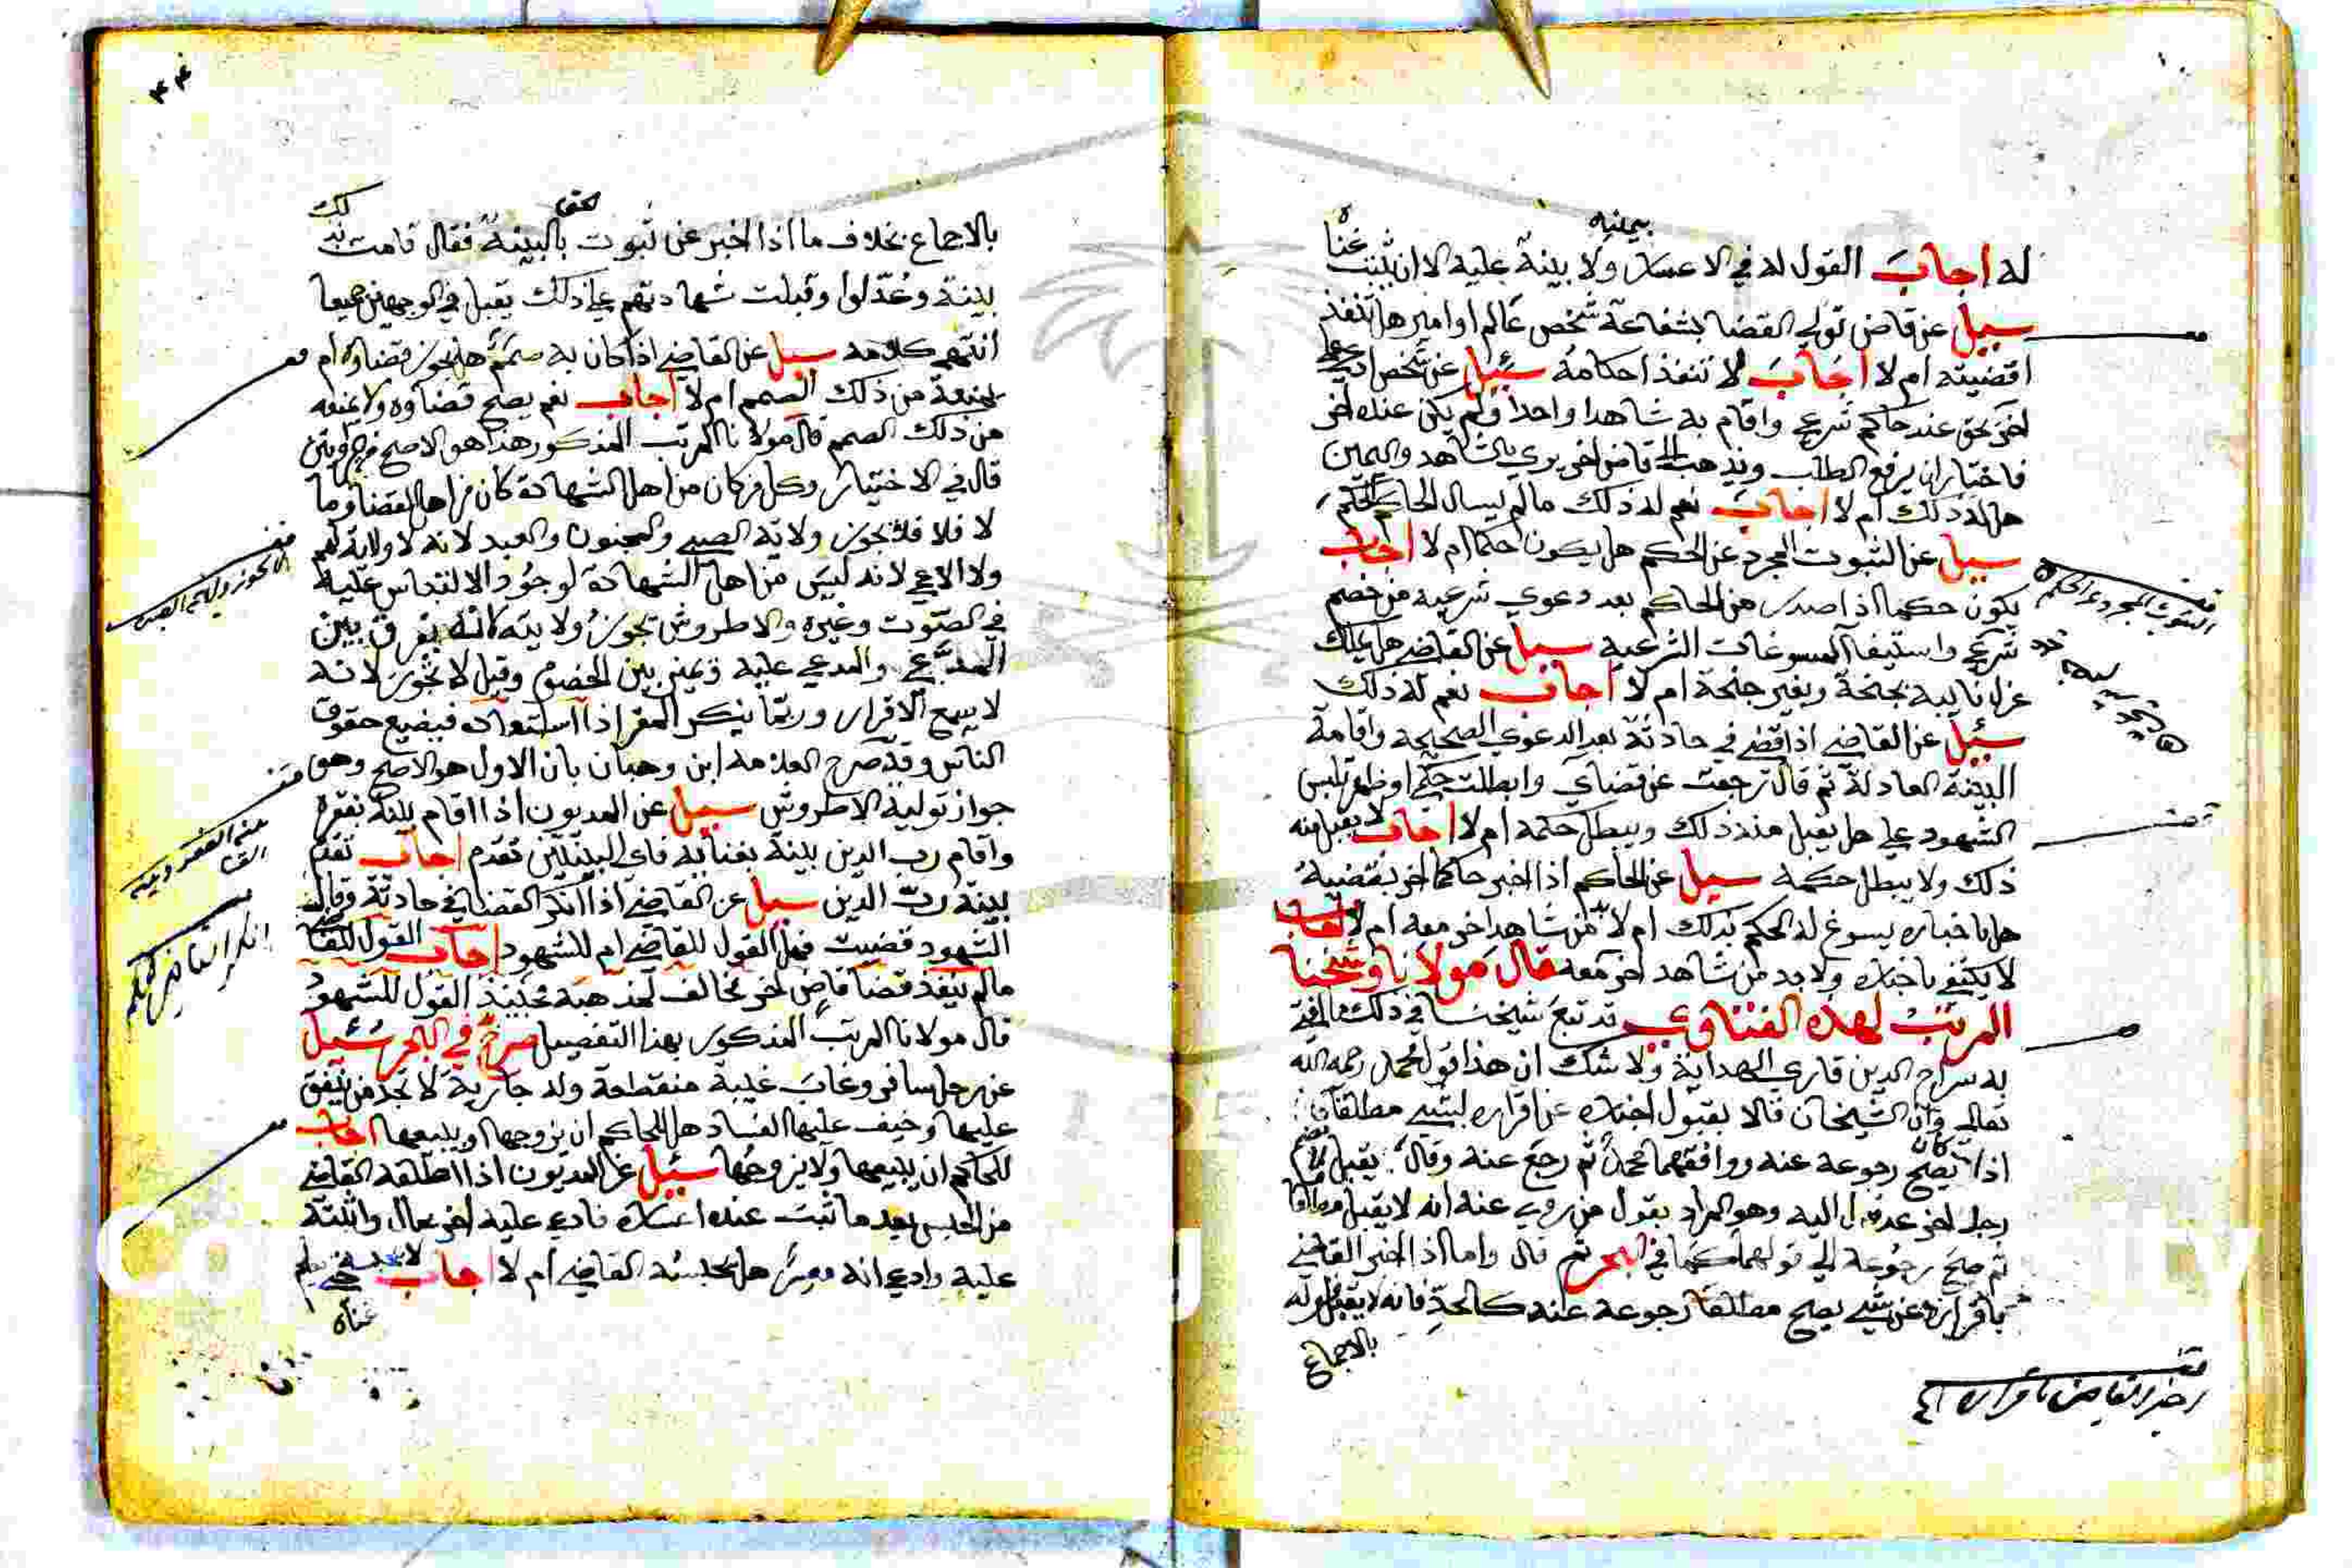 بيمينه
له اجاب القول له في الاعسار ولا بينة عليه الا ان يثبت غناه
سيل عن قاض تولي القضا بشفاعة شخص عالم او امير هل تنفذ
اقضيته ام لا اجاب لا تنفذ احكامه سئيل عن شخص ادعي علي
اخر بحق عند حاكم شرعي واقام به شاهدا واحدا ولم يكن عنده اخر
فاختار ان يرفع الطلب ويذهب الي قاض اخر يري بالشاهد واليمين
هل له ذلك ام لا اجاب نعم له ذلك مالم يسال الحاكم الحكم
سيل عن الثبوت المجرد عن الحكم هل يكون حكما ام لا اجاب
يكون حكما اذا صدر من الحاكم بعد دعوي شرعية من خصم
شرعي واستيفا المسوغات الشرعيه سيل عن القاضي هل يملك
عزل نايبه بجنحة وبغير جنحة ام لا اجاب نعم له ذلك
سئيل عن القاضي اذا قضي في حادثة بعد الدعوي الصحيحه واقامة
البينة العادلة ثم قال رجعت عن قضاي وابطلت حكمي او ظهر تلبس
الشهود علي هل يقبل منه ذلك ويبطل حكمه ام لا اجاب لا يقبل منه
ذلك ولا يبطل حكمه سيل عن الحاكم اذا اخبر حاكما اخر بقضية
هل باخباره يسوغ له الحكم بذلك ام لا بد من شاهد اخر معه ام لا اجاب
لا يكتفي باخباره ولا بد من شاهد اخر معه قال مولانا وشيخنا
المرتب لهذه الفتاوي قد تبع شيخنا في ذلك ما افتي
به سراج الدين قاري الهداية ولا شك ان هذا قول محمد رحمه الله
تعالي وان الشيخان قالا بقبول اخباره عن اقراره لشي مطلقا
اذا كان يصح رجوعه عنه ووافقهما محمد ثم رجع عنه وقال يقبل
رجل اخر عدل اليه وهو المراد بقول من روي عنه انه لا يقبل مطلقا
ثم صح رجوعه الي قولهما كما في البحر ثم قال واما اذا اخبر القاضي
باقراره عن شي يصح مطلقا رجوعه عنه كالحد فانه لا يقبل قوله
بالاجماع
الثبوت المجرد عن الحكم
اخبر القاضي باقرار
بالاجماع بخلاف ما اذا اخبر عن ثبوت بالبينة فقال قامت بذلك
بينة وعدلوا وقبلت شهادتهم علي ذلك يقبل في الوجهين جميعا
انتهي كلامه سيل عن القاضي اذا كان به صمم هل يجوز قضاوه ام
يمنعه من ذلك الصمم ام لا اجاب نعم يصح قضاوه ولا يمنعه
من ذلك الصمم قال مولانا المرتب المذكور هذا هو الاصح
قال في الاختيار وكل من كان من اهل الشهادة كان من اهل القضا وما
لا فلا فلا تجوز ولاية الصبي والمجنون والعبد لانه لا ولاية لهم
ولا الاعمي لانه ليس من اهل الشهادة لوجود الالتباس عليه
في الصوت وغيره والاطروش تجوز ولايته لانه يفرق بين
المدعي والمدعي عليه ويميز بين الخصوم وقيل لا تجوز لانه
لا يسمع الاقرار وربما ينكر المقر اذا استعاد فيضيع حقوق
الناس وقد صرح العلامه ابن وهبان بان الاول هو الاصح وهو
جواز تولية الاطروش سيل عن المديون اذا اقام بينة بفقره
واقام رب الدين بينة بغنائه فاي البينتين تقدم اجاب تقدم
بينة رب الدين سيل عن القاضي اذا انكر القضا في حادثة وقالت
الشهود قضيت فهل القول للقاضي ام للشهود اجاب القول للقاضي
مالم ينفذ قضا قاض اخر مخالف لمذهبه فحينئذ القول للشهود
قال مولانا المرتب المذكور بهذا التفصيل صرح في البحر سئيل
عن رجل سافر وغاب غيبة منقطعة وله جارية لا تجد من ينفق
عليها وخيف عليها الفساد هل للحاكم ان يزوجها او يبيعها اجاب
للحاكم ان يبيعها ولا يزوجها سئيل عن المديون اذا اطلقه القاضي
من الحبس بعد ما ثبت عنده اعساره فادعي عليه اخر بمال واثبته
عليه وادعي انه موسر هل يحبسه القاضي ام لا اجاب لا يحبسه حتي يعلم
غناه
انكر القاضي الحكم